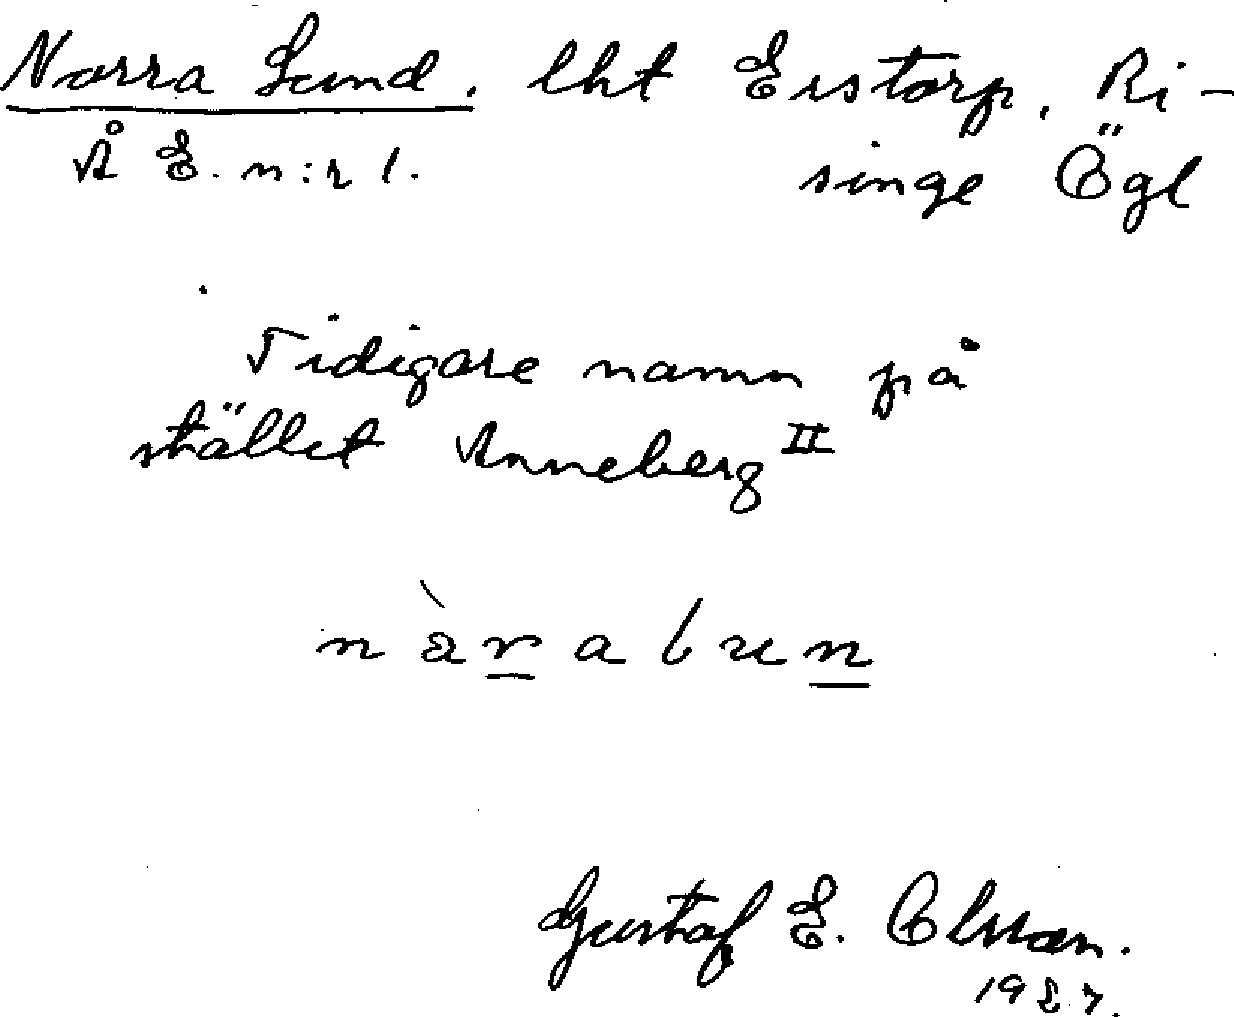 Norra Lund. lht Eistorp, Ri-
Å E. n:r 1. singe Ögl
Tidigare namn på
stället Anneberg II
nàralun
Gustaf E. Olsson.
1927.